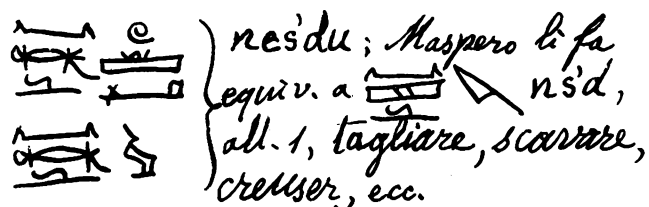 nes'du; Maspero li fa
equiv. a ns'd,
all. 1, tagliare, scavare,
creuser, ecc.